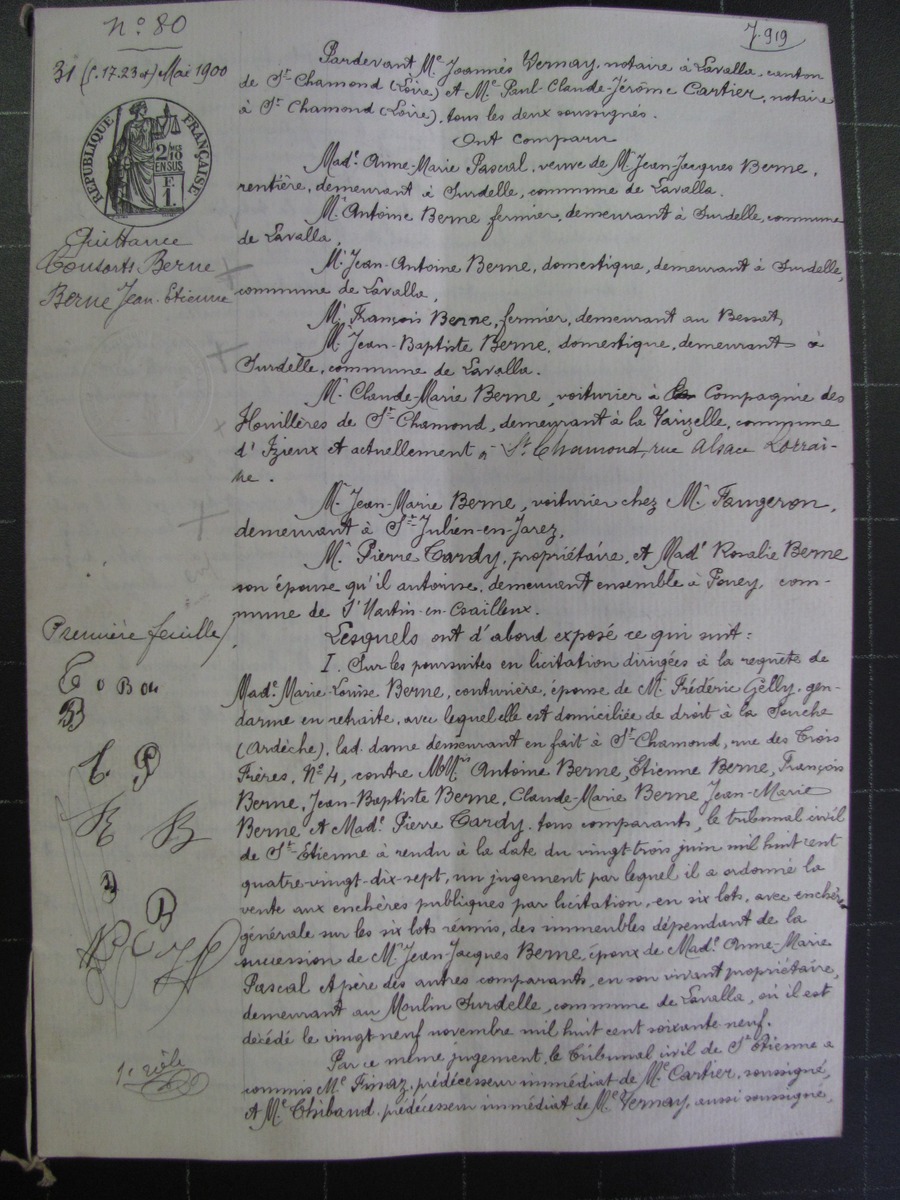 N° 80
7.919
31 (s. 17.23 et) Mai 1900
RÉPUBLIQUE FRANÇAISE
2/10
EN SUS
F.
1.
Quittance
Consorts Berne
Berne Jean-Etienne
Pardevant Me Joannès Vernay, notaire à Lavalla, canton
de St-Chamond (Loire) et Me Paul-Claude-Jérôme Cartier, notaire
à St Chamond (Loire), tous les deux soussignés.
Ont comparu
Made Anne-Marie Pascal, veuve de Mr Jean-Jacques Berne,
rentière, demeurant à Surdelle, commune de Lavalla.
Mr Antoine Berne fermier, demeurant à Surdelle, commune
de Lavalla,
Mr Jean-Antoine Berne, domestique, demeurant à Surdelle,
commune de Lavalla,
Mr François Berne, fermier, demeurant au Bessat,
Mr Jean-Baptiste Berne, domestique, demeurant à
Surdelle, commune de Lavalla.
Mr Claude-Marie Berne, voiturier à la Compagnie des
Houillères de St-Chamond, demeurant à la Varizelle, commune
d'Izieux et actuellement à St Chamond, rue Alsace Lorrai-
ne.
Mr Jean-Marie Berne, voiturier chez Mr Faugeron,
demeurant à St-Julien-en-Jarez,
Mr Pierre Cardy, propriétaire, et Made Rosalie Berne
son épouse qu'il autorise, demeurant ensemble à Poney, com-
mune de St Martin-en-Coailleux.
Lesquels ont d'abord exposé ce qui suit:
I. Sur les poursuites en licitation dirigées à la requête de
Made Marie-Louise Berne, couturière, épouse de Mr Frédéric Gelly, gen-
darme en retraite, avec lequel elle est domiciliée de droit à la Souche
(Ardèche), lad. dame demeurant en fait à St-Chamond, rue des Trois
Frères, No 4, contre MMrs Antoine Berne, Etienne Berne, François
Berne, Jean-Baptiste Berne, Claude-Marie Berne Jean-Marie
Berne et Made Pierre Cardy, tous comparants, le tribunal civil
de St-Etienne à rendu à la date du vingt-trois juin mil huit cent
quatre-vingt-dix-sept, un jugement par lequel il a ordonné la
vente aux enchères publiques par licitation, en six lots, avec enchère
générale sur les six lots réunis, des immeubles dépendant de la
succession de Mr Jean-Jacques Berne, époux de Made Anne-Marie
Pascal et père des autres comparants, en son vivant propriétaire,
demeurant au Moulin Surdelle, commune de Lavalla, où il est
décédé le vingt-neuf novembre mil huit cent soixante-neuf.
Par ce même jugement, le Tribunal civil de St Etienne a
commis Me Finaz, prédécesseur immédiat de Me Cartier, soussigné,
et Me Thibaud, prédécesseur immédiat de Me Vernay, aussi soussigné,
Première feuille
B
P
B
B
1er rôle